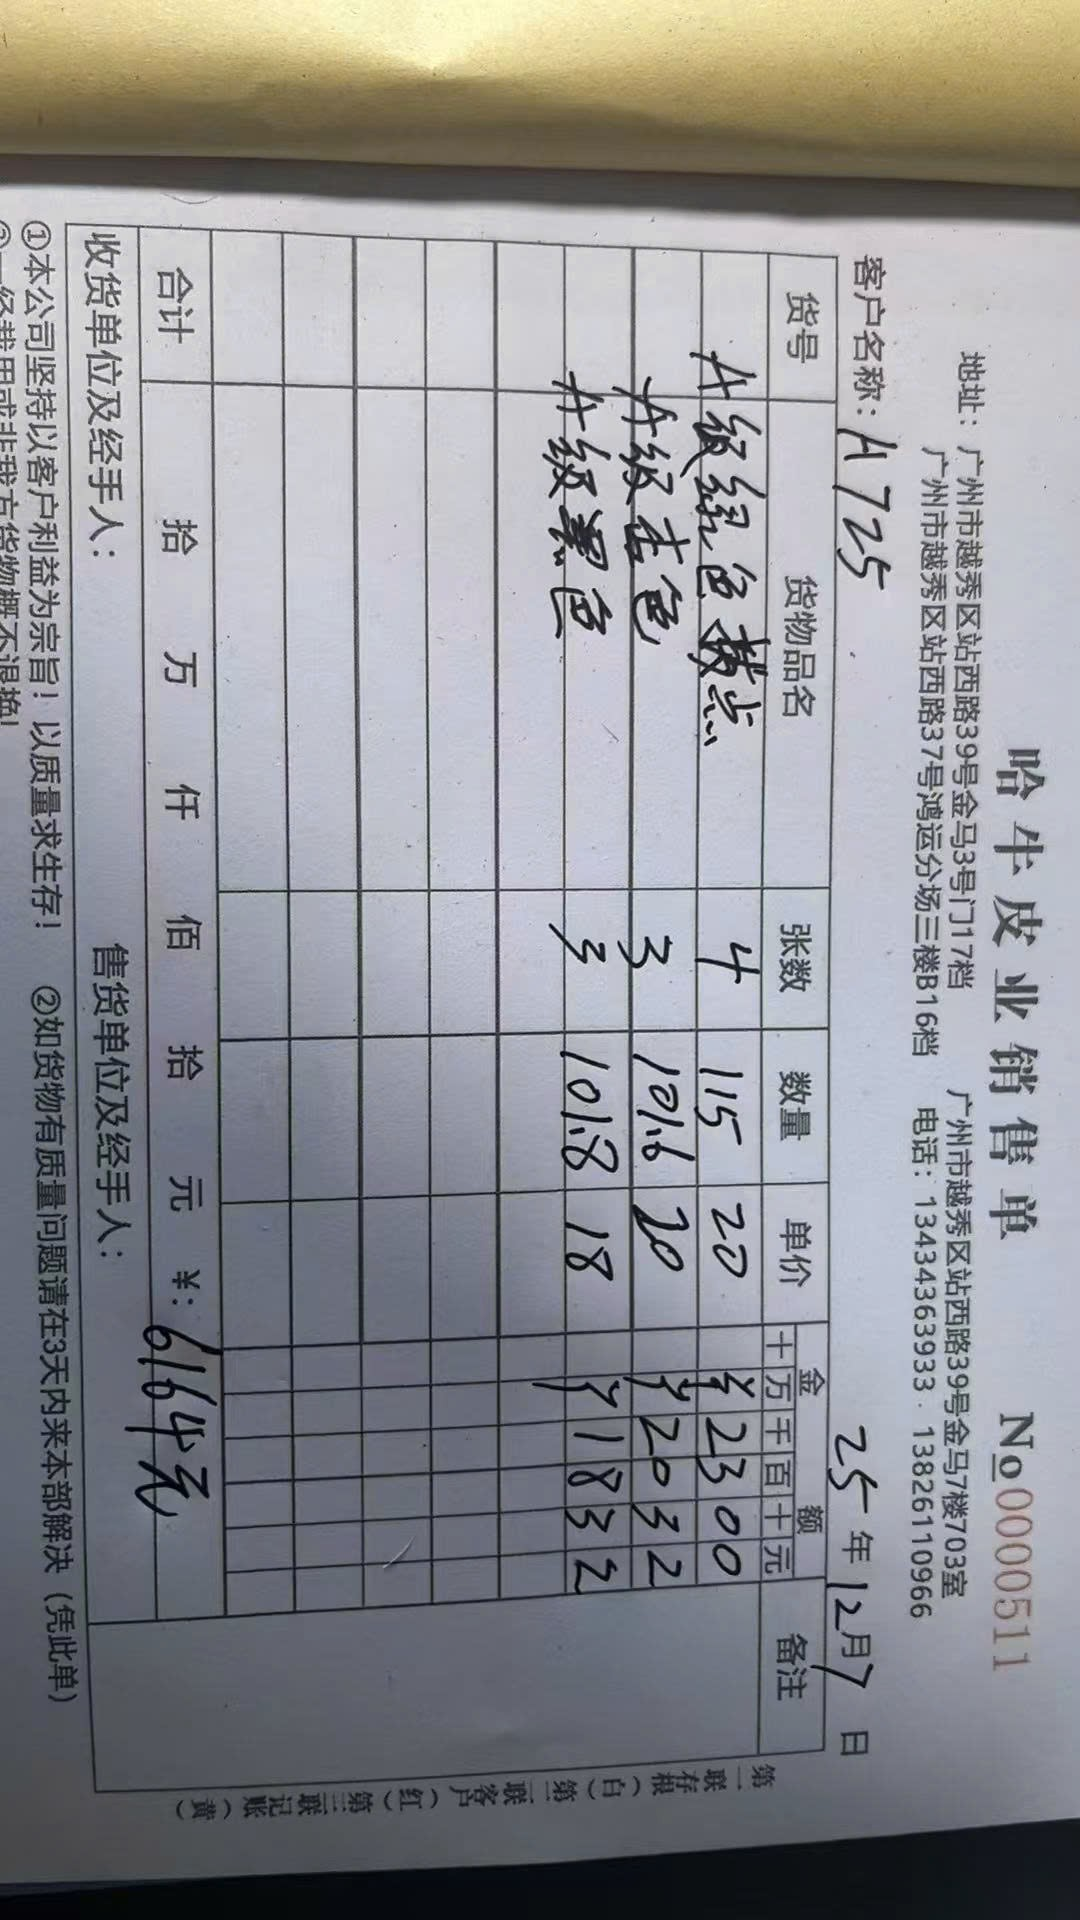 哈牛皮业销售单 No 0000511
地址：广州市越秀区站西路39号金马3号门17档 广州市越秀区站西路39号金马7楼703室
广州市越秀区站西路37号鸿运分场三楼B16档 电话：13434363933 · 13826110966
客户名称：A725 25年12月7日
货号 货物品名 张数 数量 单价 金额 备注
十 万 千 百 十 元
A级绿色数点 4 115 20 ¥2300
A级杏色 3 101.6 20 ¥2032
A级黑色 3 101.8 18 ¥1832
合计 拾 万 仟 佰 拾 元 ¥：6164元
收货单位及经手人： 售货单位及经手人：
①本公司坚持以客户利益为宗旨！以质量求生存！ ②如货物有质量问题请在3天内来本部解决（凭此单）
③一经裁用或非我方货物概不退换！
第一联存根（白）第二联客户（红）第三联记账（黄）